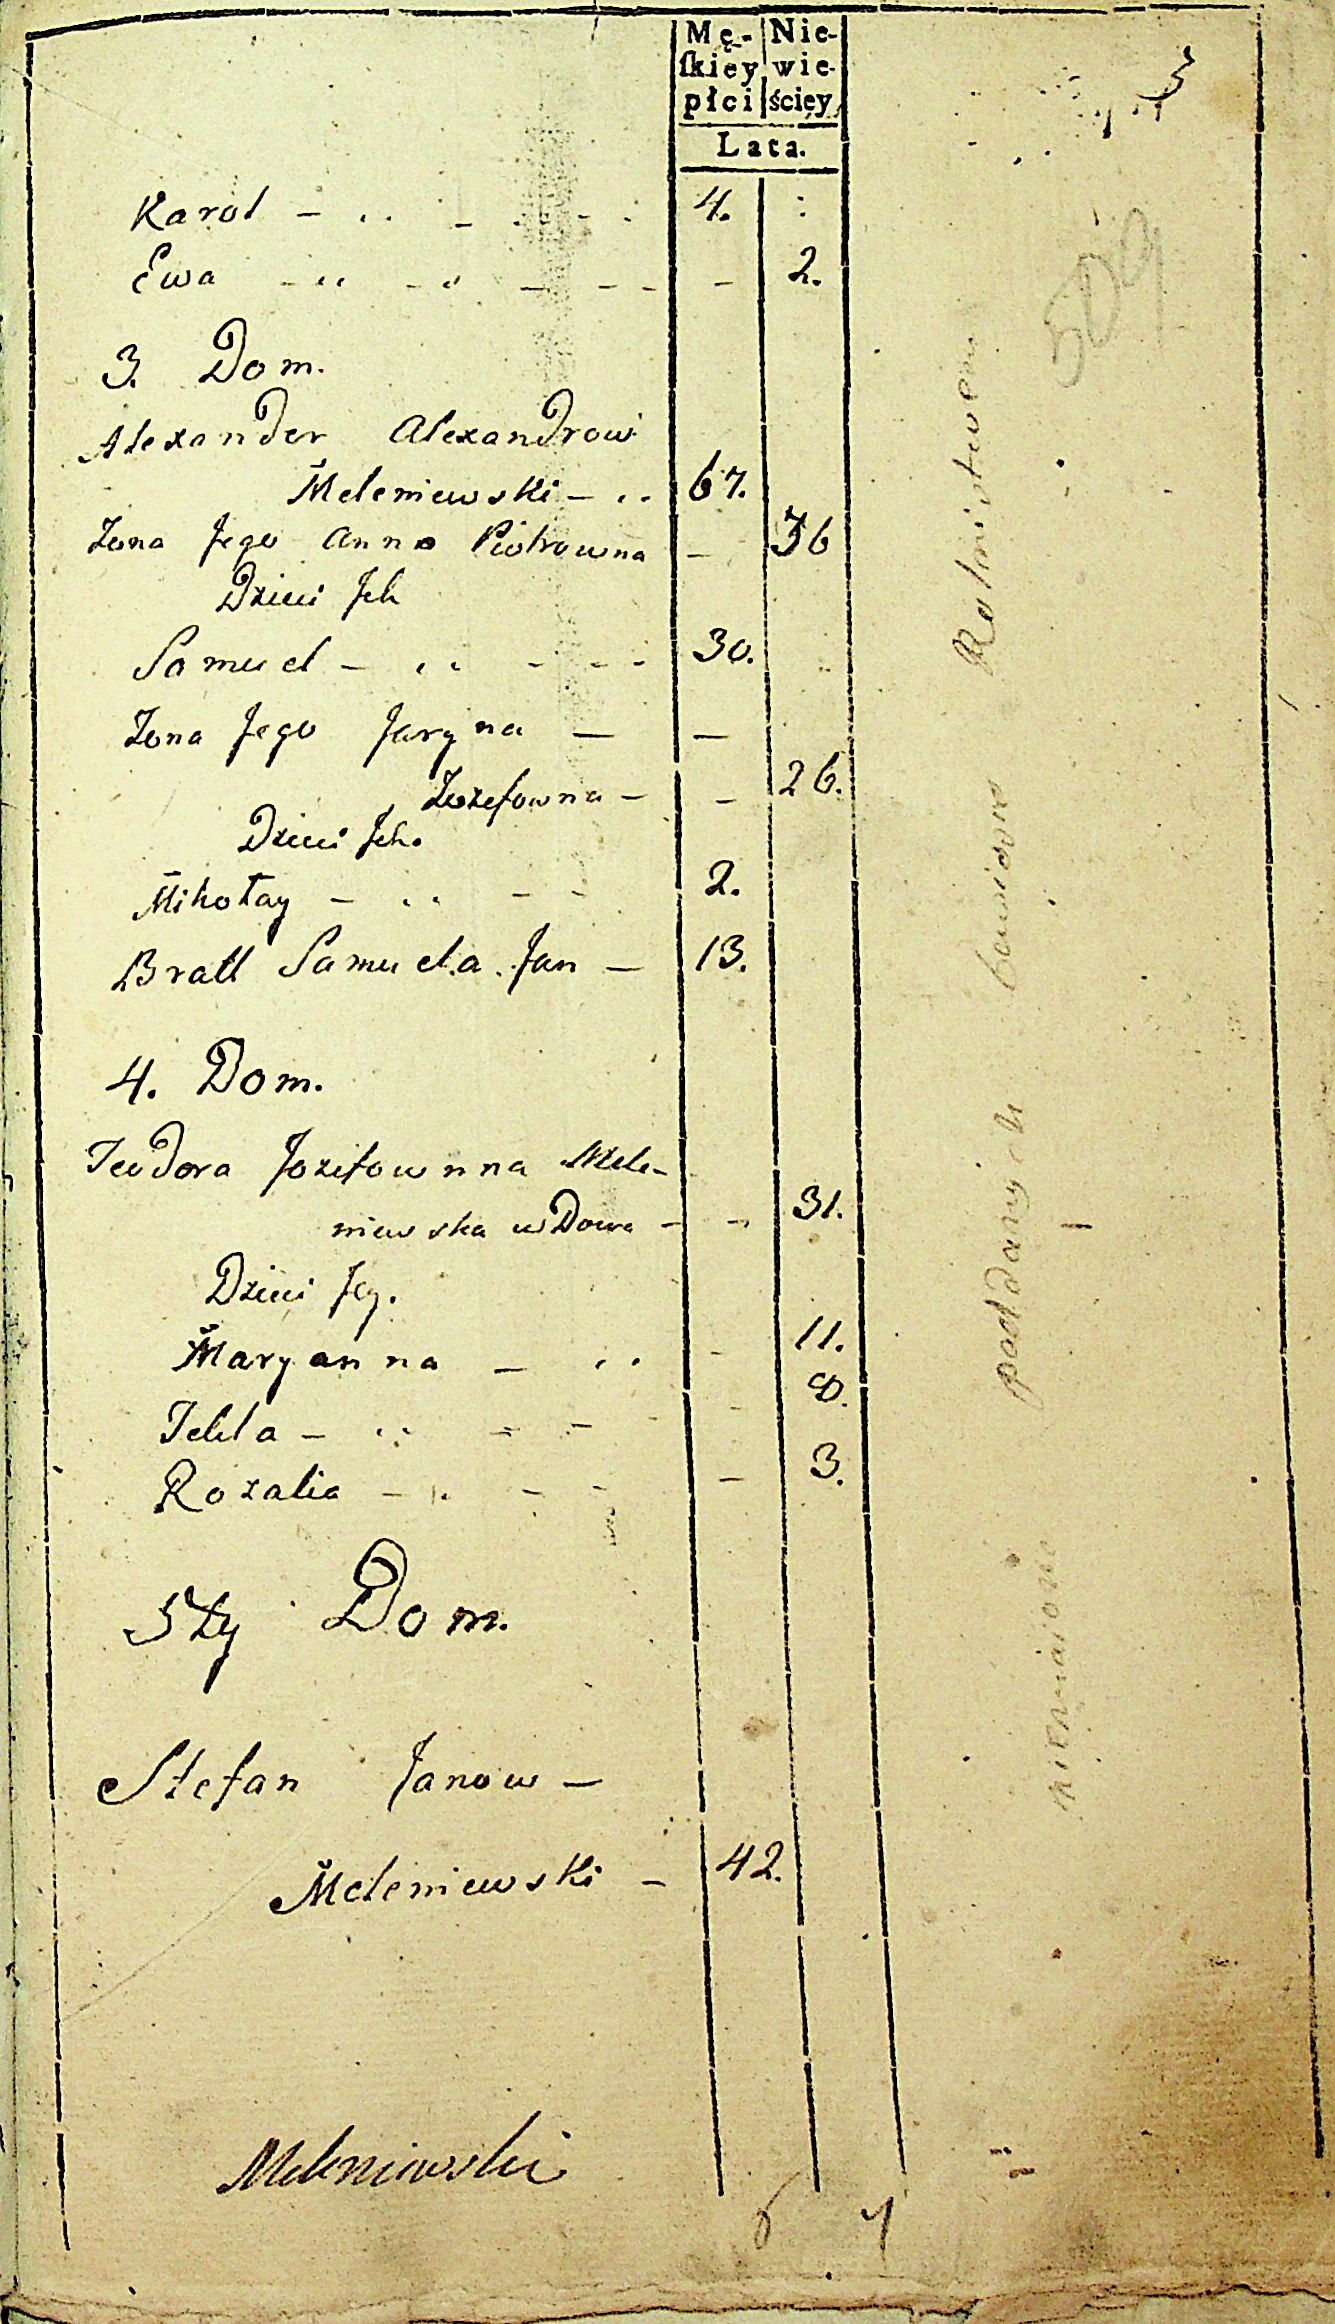 Mę- Nie-
ſkiey wie-
płci ścięy
Lata.
3
509
Karol 4.
Ewa 2.
3. Dom.
Alexander Alexandrow
Meleniewski 67.
Zona Jego Anna Piotrowna 36
Dzieci Jch
Samuel 30.
Zona Jego Jaryna
Jozefowna 26.
Dzieci Jch.
Mikołay 2.
Bratt Samuela Jan 13.
4. Dom.
Teodora Jozefownna Mele-
niewska wDowa 31.
Dzieci Jey.
Maryanna 11.
Tekla 8.
Rozalia 3.
5ty Dom.
Stefan Janow
Meleniewski 42.
Meleniewski
6 7
Rolnictwem
bawiąsię
poddanych
niemaiąc